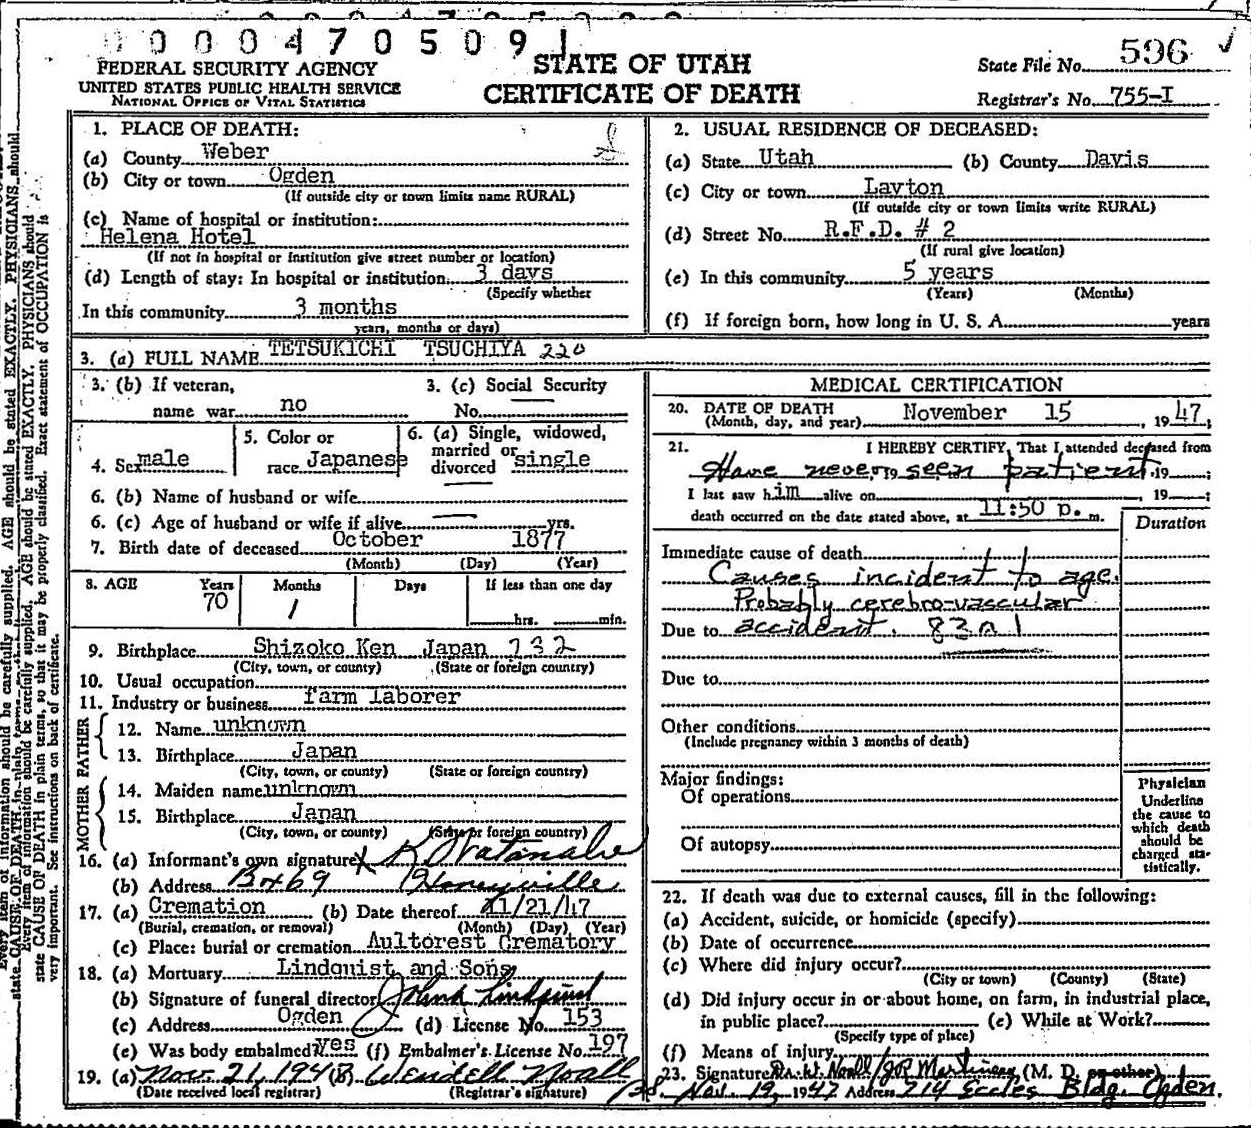 0000470509
FEDERAL SECURITY AGENCY
UNITED STATES PUBLIC HEALTH SERVICE
NATIONAL OFFICE OF VITAL STATISTICS
STATE OF UTAH
CERTIFICATE OF DEATH
State File No. 596
Registrar's No. 755-I
1. PLACE OF DEATH:
(a) County Weber
(b) City or town Ogden
(If outside city or town limits name RURAL)
(c) Name of hospital or institution:
Helena Hotel
(If not in hospital or institution give street number or location)
(d) Length of stay: In hospital or institution 3 days
(Specify whether
In this community 3 months
years, months or days)
2. USUAL RESIDENCE OF DECEASED:
(a) State Utah (b) County Davis
(c) City or town Layton
(If outside city or town limits write RURAL)
(d) Street No. R.F.D. # 2
(If rural give location)
(e) In this community 5 years
(Years) (Months)
(f) If foreign born, how long in U. S. A. years
3. (a) FULL NAME TETSUKICHI TSUCHIYA 220
3. (b) If veteran,
name war no
3. (c) Social Security
No.
4. Sex male
5. Color or
race Japanese
6. (a) Single, widowed,
married or
divorced single
6. (b) Name of husband or wife
6. (c) Age of husband or wife if alive yrs.
7. Birth date of deceased October 1877
(Month) (Day) (Year)
8. AGE Years Months Days If less than one day
70 1 hrs. min.
9. Birthplace Shizoko Ken Japan 732
(City, town, or county) (State or foreign country)
10. Usual occupation
11. Industry or business farm laborer
FATHER
12. Name unknown
13. Birthplace Japan
(City, town, or county) (State or foreign country)
MOTHER
14. Maiden name unknown
15. Birthplace Japan
(City, town, or county) (State or foreign country)
16. (a) Informant's own signature X K Watanabe
(b) Address Box 69 Honeyville
17. (a) Cremation (b) Date thereof 11/21/47
(Burial, cremation, or removal) (Month) (Day) (Year)
(c) Place: burial or cremation Aultorest Crematory
18. (a) Mortuary Lindquist and Sons
(b) Signature of funeral director John Lindquist
(c) Address Ogden (d) License No. 153
(e) Was body embalmed? yes (f) Embalmer's License No. 197
19. (a) Nov. 21, 194 (b) Wendell Noall
(Date received local registrar) (Registrar's signature)
MEDICAL CERTIFICATION
20. DATE OF DEATH
(Month, day, and year) November 15, 1947
21. I HEREBY CERTIFY, That I attended deceased from
Have never 19 seen patient 19 ;
I last saw him alive on , 19 ;
death occurred on the date stated above, at 11:50 p. m.
Duration
Immediate cause of death
Causes incident to age.
Probably cerebro-vascular
Due to accident. 83a1
Due to
Other conditions
(Include pregnancy within 3 months of death)
Major findings:
Of operations
Of autopsy
Physician
Underline
the cause to
which death
should be
charged sta-
tistically.
22. If death was due to external causes, fill in the following:
(a) Accident, suicide, or homicide (specify)
(b) Date of occurrence
(c) Where did injury occur?
(City or town) (County) (State)
(d) Did injury occur in or about home, on farm, in industrial place,
in public place? (e) While at Work?
(Specify type of place)
(f) Means of injury
23. Signature (M. D. or other)
Nov. 19, 1947 Address 714 Eccles Bldg. Ogden.
state CAUSE OF DEATH in plain terms, so that it may be properly classified. Exact statement of OCCUPATION is
very important. See instructions on back of certificate.